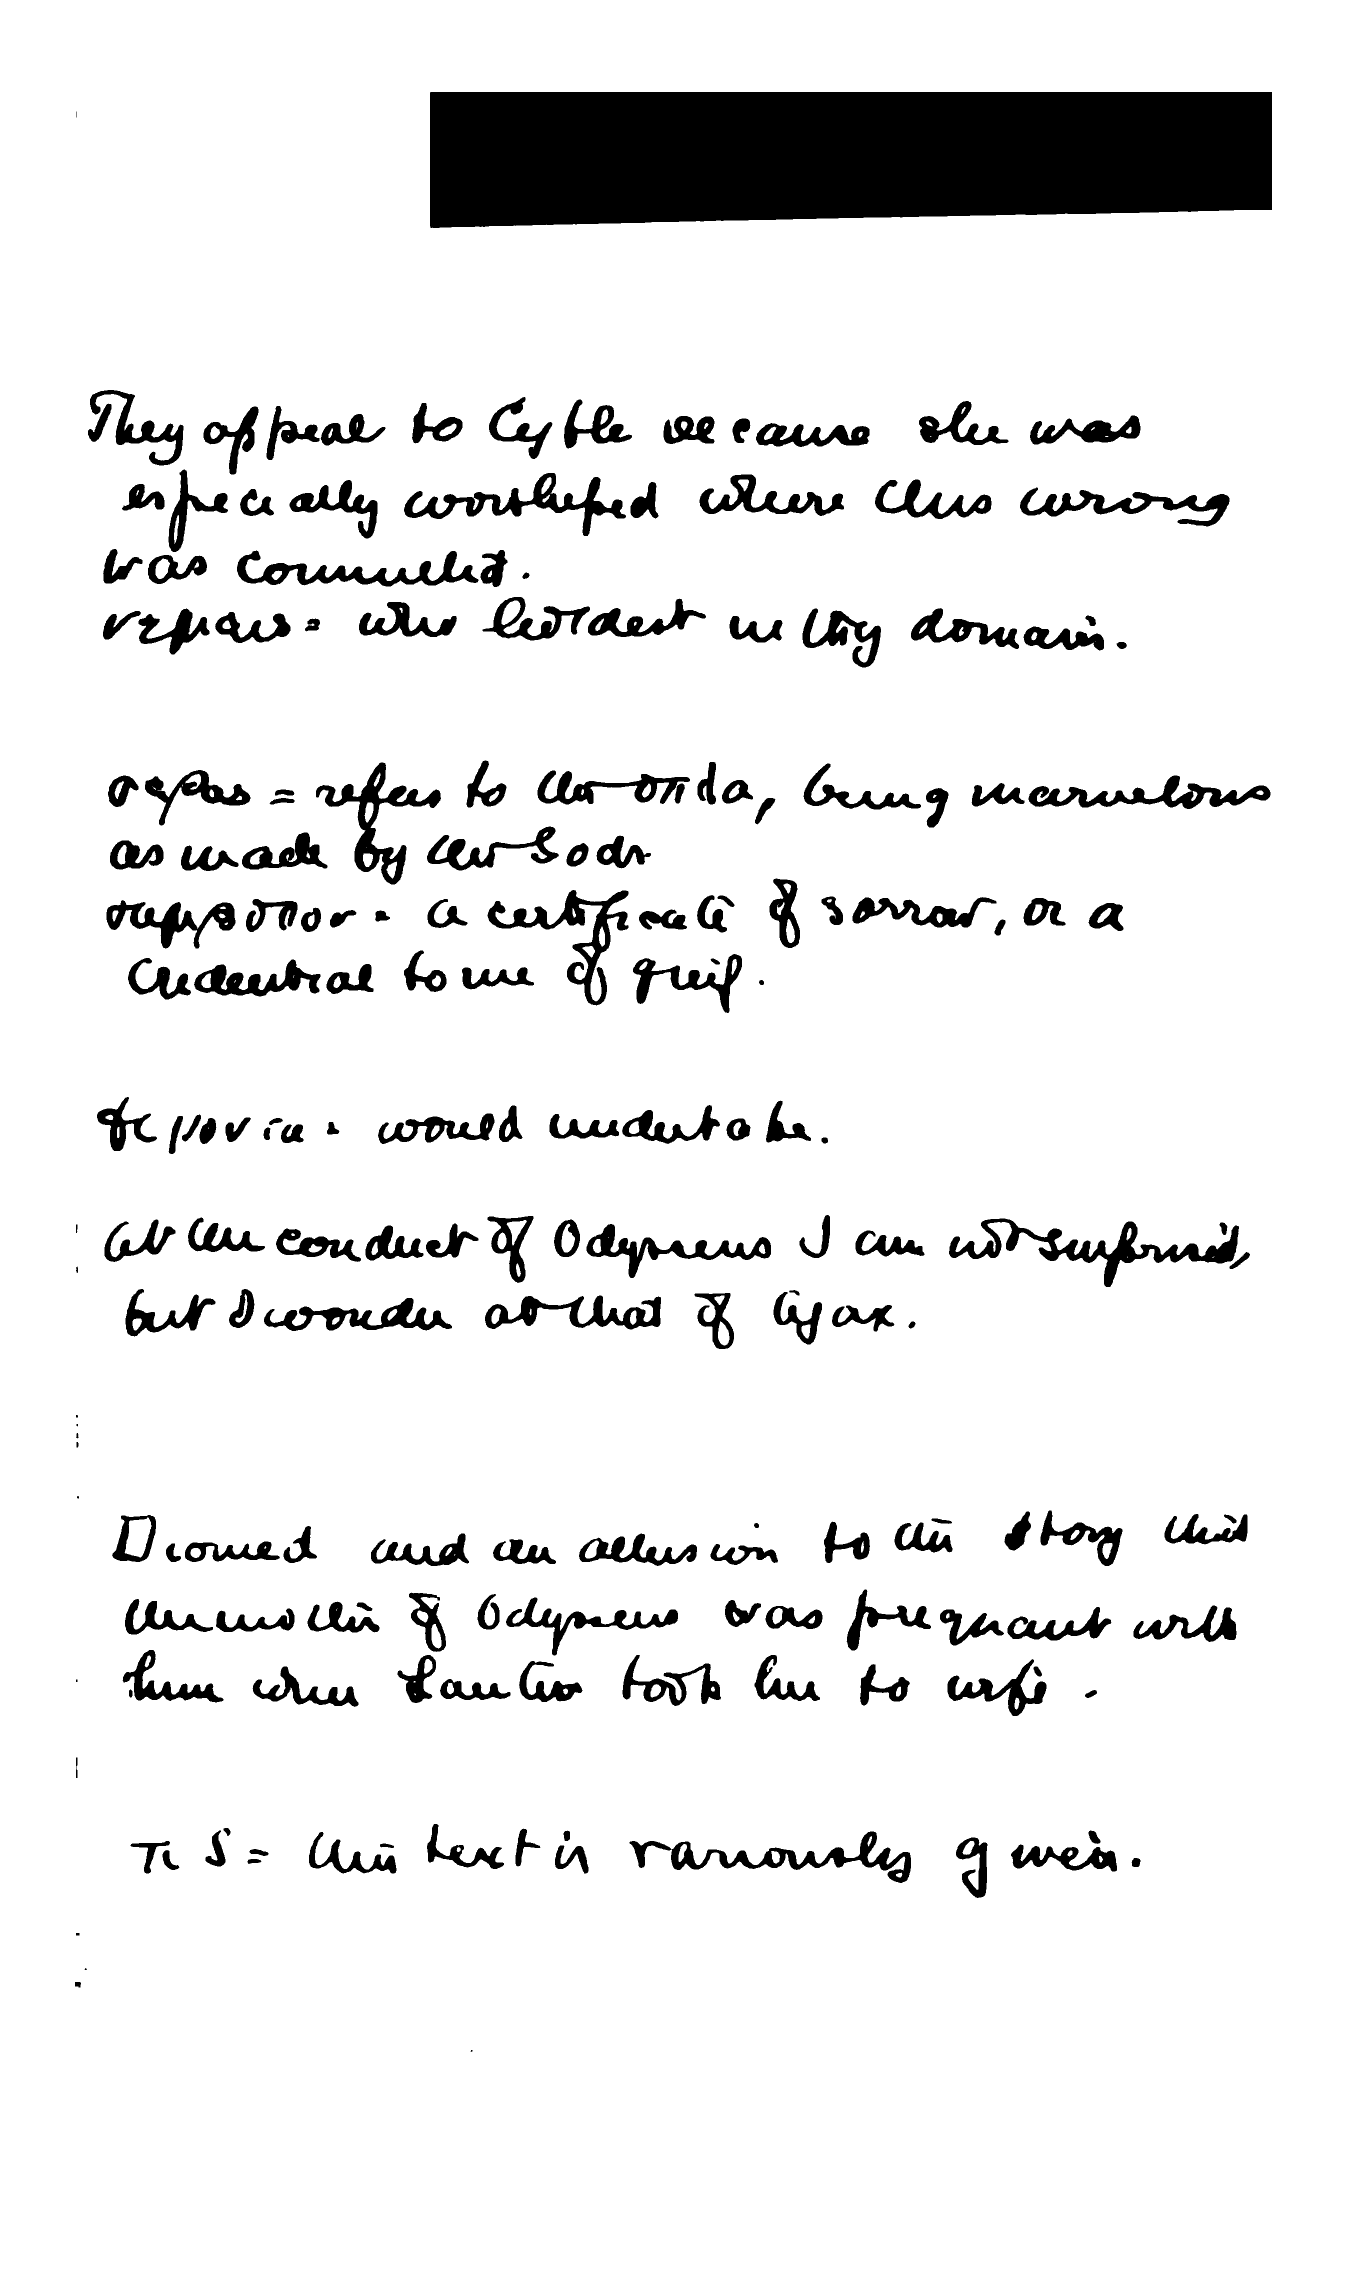 They appeal to Cyble because she was
especially worshiped where this wrong
was committed.
νεμεις = who holdest in thy domain.
σεβας = refers to the οπλα, being marvelous
as made by the Gods
συμβολον = a certificate of sorrow, or a
credential to me of grief.
would undertake.
At the conduct of Odysseus I am not surprised,
but I wonder at that of Ajax.
Diomed and an allusion to the story that
the mother of Odysseus was pregnant with
him when Laertes took her to wife.
τι δ = this text is variously given.